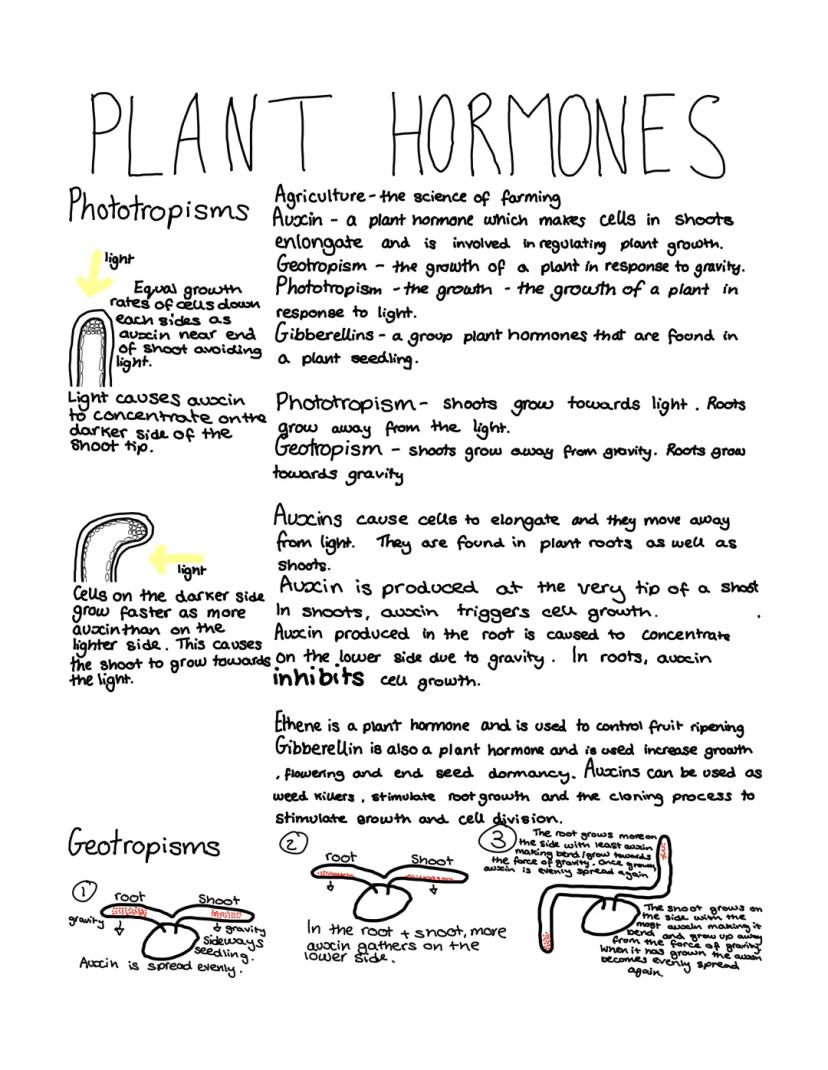 PLANT HORMONES
Phototropisms
light
Equal growth
rates of cells down
each sides as
auxin near end
of shoot avoiding
light.
Light causes auxin
to concentrate on the
darker side of the
shoot tip.
light
Cells on the darker side
grow faster as more
auxin than on the
lighter side. This causes
the shoot to grow towards
the light.
Agriculture - the science of farming
Auxin - a plant hormone which makes cells in shoots
enlongate and is involved in regulating plant growth.
Geotropism - the growth of a plant in response to gravity.
Phototropism - the growth - the growth of a plant in
response to light.
Gibberellins - a group plant hormones that are found in
a plant seedling.
Phototropism - shoots grow towards light. Roots
grow away from the light.
Geotropism - shoots grow away from gravity. Roots grow
towards gravity
Auxins cause cells to elongate and they move away
from light. They are found in plant roots as well as
shoots.
Auxin is produced at the very tip of a shoot
In shoots, auxin triggers cell growth.
Auxin produced in the root is caused to concentrate
on the lower side due to gravity. In roots, auxin
inhibits cell growth.
Ethene is a plant hormone and is used to control fruit ripening
Gibberellin is also a plant hormone and is used increase growth
, flowering and end seed dormancy. Auxins can be used as
weed killers, stimulate root growth and the cloning process to
stimulate growth and cell division.
Geotropisms
1
root
Shoot
gravity
gravity
Sideways
seedling.
Auxin is spread evenly.
2
root
Shoot
In the root + shoot, more
auxin gathers on the
lower side.
3
The root grows more on
the side with least auxin
making bend/grow towards
the force of gravity. Once grown
auxin is evenly spread again
The shoot grows on
the side with the
most auxin making it
bend and grow up away
from the force of gravity
When it has grown the auxin
becomes evenly spread
again.